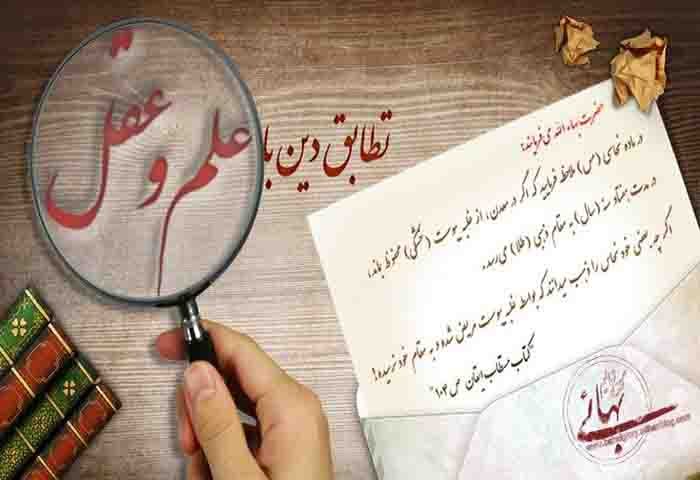 تطابق دین با
علم و عقل
حضرت بهاء الله می فرمایند:
در ماده نحاسی (مس) ملاحظه فرمایید که اگر در معدن، از غلبه یبوست (خشکی) محفوظ بماند،
در مدت هفتاد سنه (سال) به مقام ذهبی (طلا) می رسد.
اگر چه بعضی خود نحاس را ذهب میدانند که بواسطه غلبه یبوست مریض شده و به مقام خود نرسیده!
"کتاب مستطاب ایقان ص ۱۰۴"
بهائی